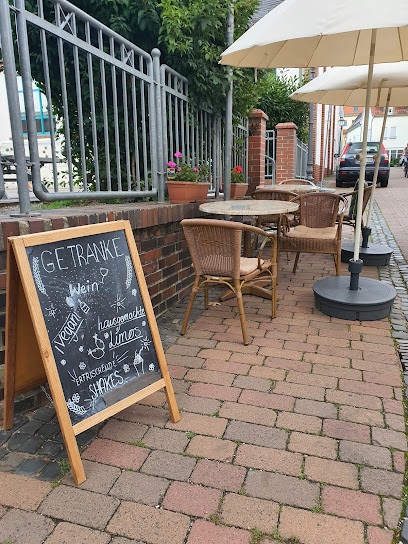 GETRANKE
Wein
Vegan!
hausgemachte
Limos
ERFRISCHENDE
SHAKES